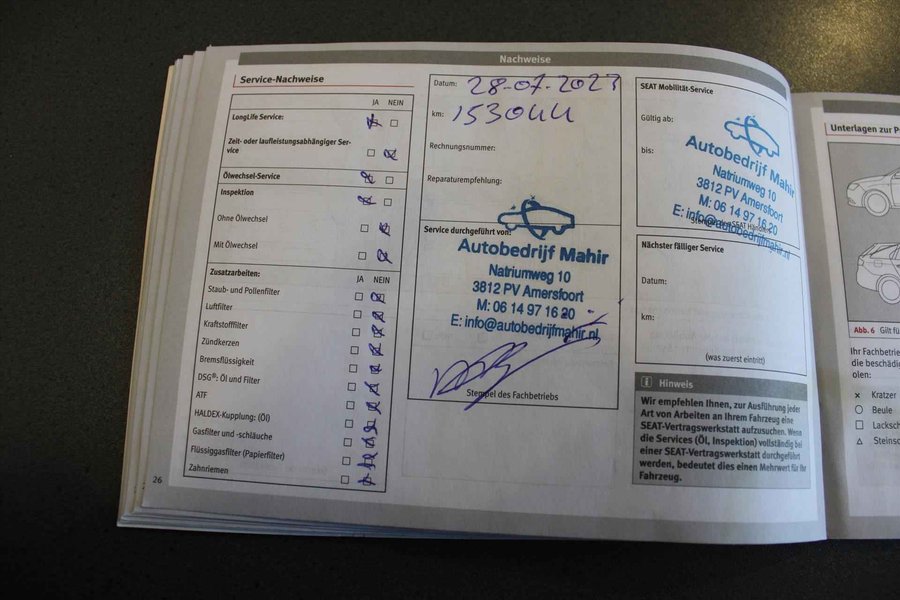 Nachweise
Service-Nachweise
JA NEIN
LongLife Service:
Zeit- oder laufleistungsabhängiger Ser-
vice
Ölwechsel-Service
Inspektion
Ohne Ölwechsel
Mit Ölwechsel
Zusatzarbeiten: JA NEIN
Staub- und Pollenfilter
Luftfilter
Kraftstofffilter
Zündkerzen
Bremsflüssigkeit
DSG®: Öl und Filter
ATF
HALDEX-Kupplung: (Öl)
Gasfilter und -schläuche
Flüssiggasfilter (Papierfilter)
Zahnriemen
26
Datum: 28-07-2023
km: 153044
Rechnungsnummer:
Reparaturempfehlung:
Service durchgeführt von:
Autobedrijf Mahir
Natriumweg 10
3812 PV Amersfoort
M: 06 14 97 16 20
E: info@autobedrijfmahir.nl
Stempel des Fachbetriebs
SEAT Mobilität-Service
Gültig ab:
bis:
Autobedrijf Mahir
Natriumweg 10
3812 PV Amersfoort
M: 06 14 97 16 20
E: info@autobedrijfmahir.nl
Nächster fälliger Service
Datum:
km:
(was zuerst eintritt)
Hinweis
Wir empfehlen Ihnen, zur Ausführung jeder
Art von Arbeiten an Ihrem Fahrzeug eine
SEAT-Vertragswerkstatt aufzusuchen. Wenn
die Services (Öl, Inspektion) vollständig bei
einer SEAT-Vertragswerkstatt durchgeführt
werden, bedeutet dies einen Mehrwert für Ihr
Fahrzeug.
Unterlagen zur
Abb. 6 Gilt
Ihr Fachbetrie
die beschädi
olen:
Kratzer
Beule
Lacksch
Steins